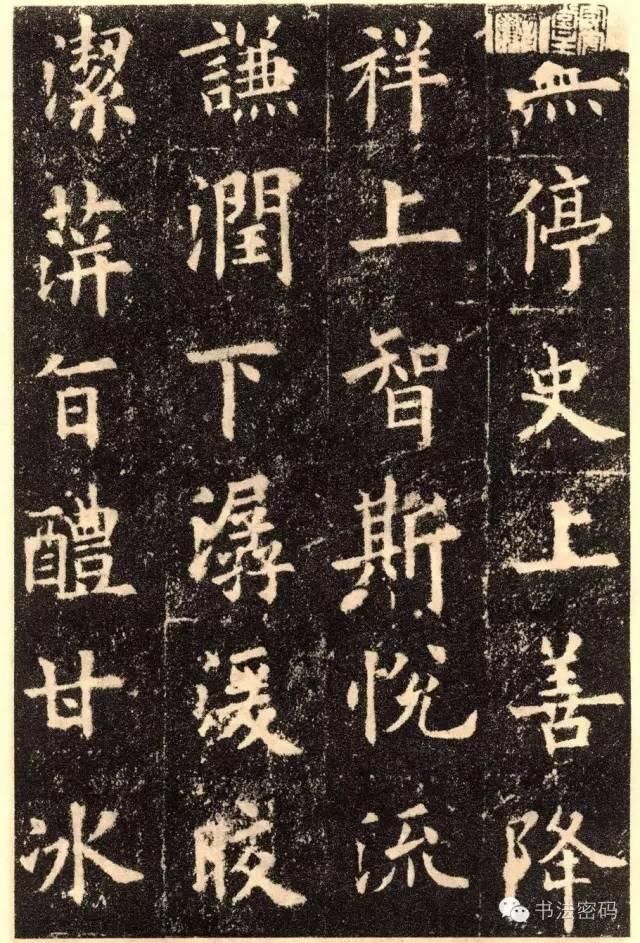 無停史上善降
祥上智斯悅流
謙潤下潺湲晈
潔蓱旨醴甘冰
书法密码